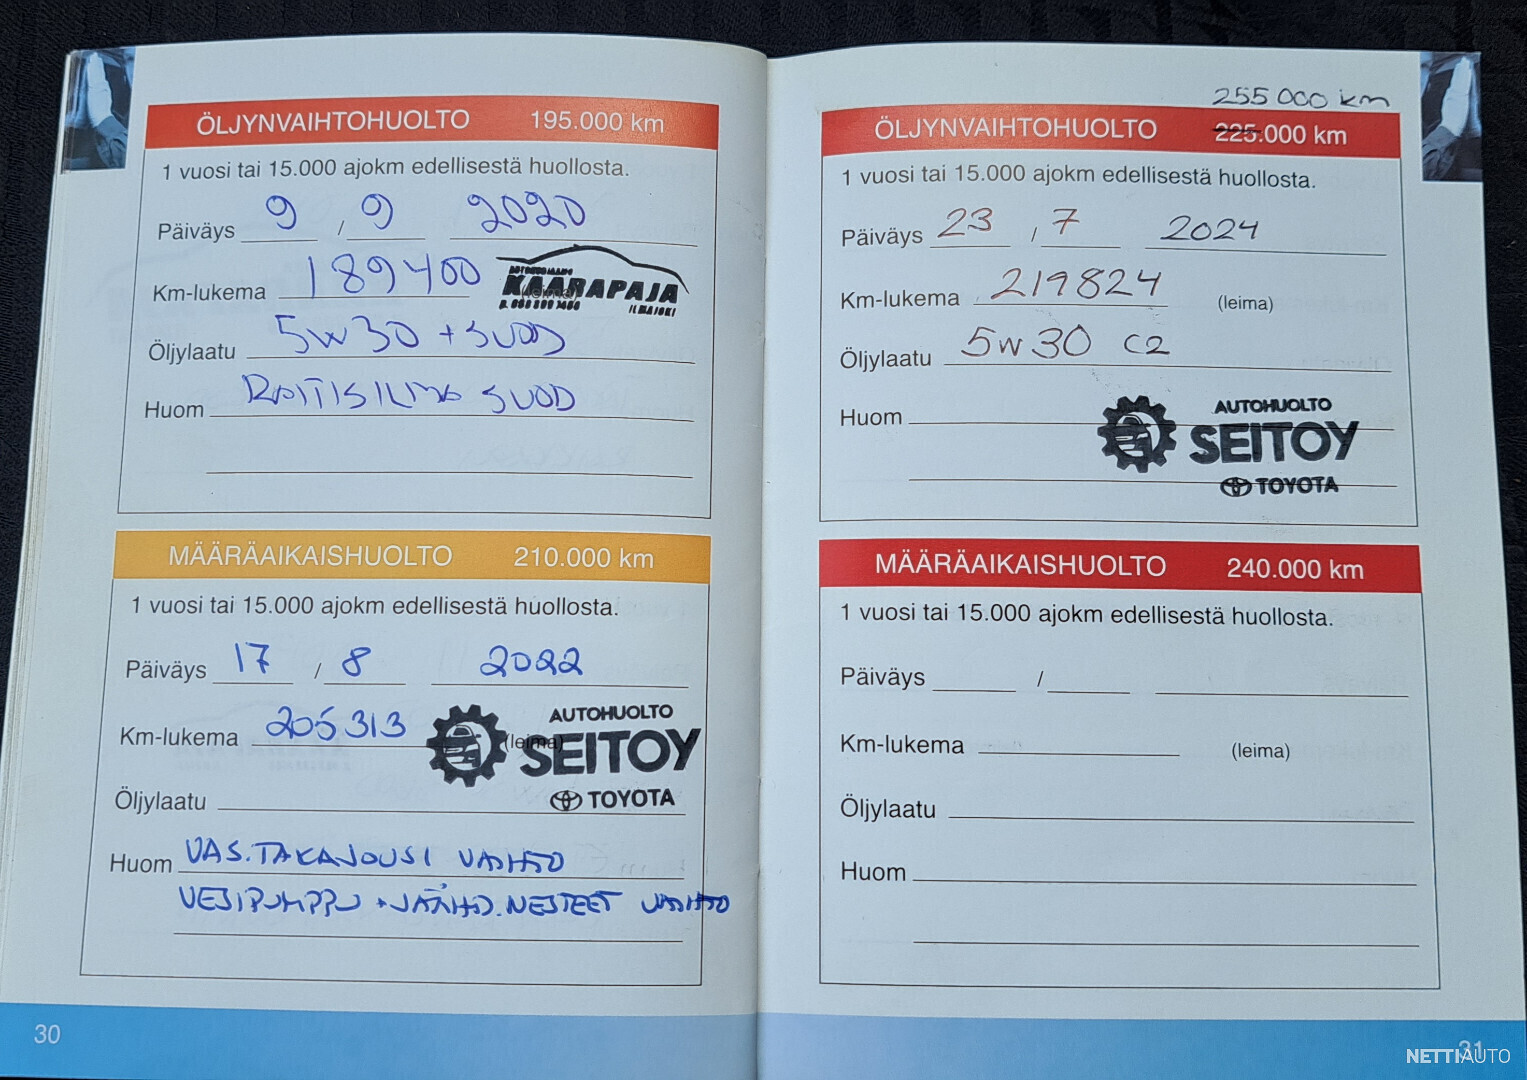 ÖLJYNVAIHTOHUOLTO 195.000 km
1 vuosi tai 15.000 ajokm edellisestä huollosta.
Päiväys 9 / 9 2020
Km-lukema 189400 (leima)
KAARAPAJA
ILMAJOKI
Öljylaatu 5W30 + SUOD
Huom RAITISILMA SUOD
MÄÄRÄAIKAISHUOLTO 210.000 km
1 vuosi tai 15.000 ajokm edellisestä huollosta.
Päiväys 17 / 8 2022
Km-lukema 205313 (leima)
AUTOHUOLTO
SEITOY
TOYOTA
Öljylaatu
Huom VAS.TAKAJOUSI VAIHTO
VESIPUMPPU + JÄÄHD.NESTEET VAIHTO
30
255 000 km
ÖLJYNVAIHTOHUOLTO 225.000 km
1 vuosi tai 15.000 ajokm edellisestä huollosta.
Päiväys 23 / 7 2024
Km-lukema 219824 (leima)
Öljylaatu 5W30 C2
Huom
AUTOHUOLTO
SEITOY
TOYOTA
MÄÄRÄAIKAISHUOLTO 240.000 km
1 vuosi tai 15.000 ajokm edellisestä huollosta.
Päiväys /
Km-lukema (leima)
Öljylaatu
Huom
31
NETTIAUTO